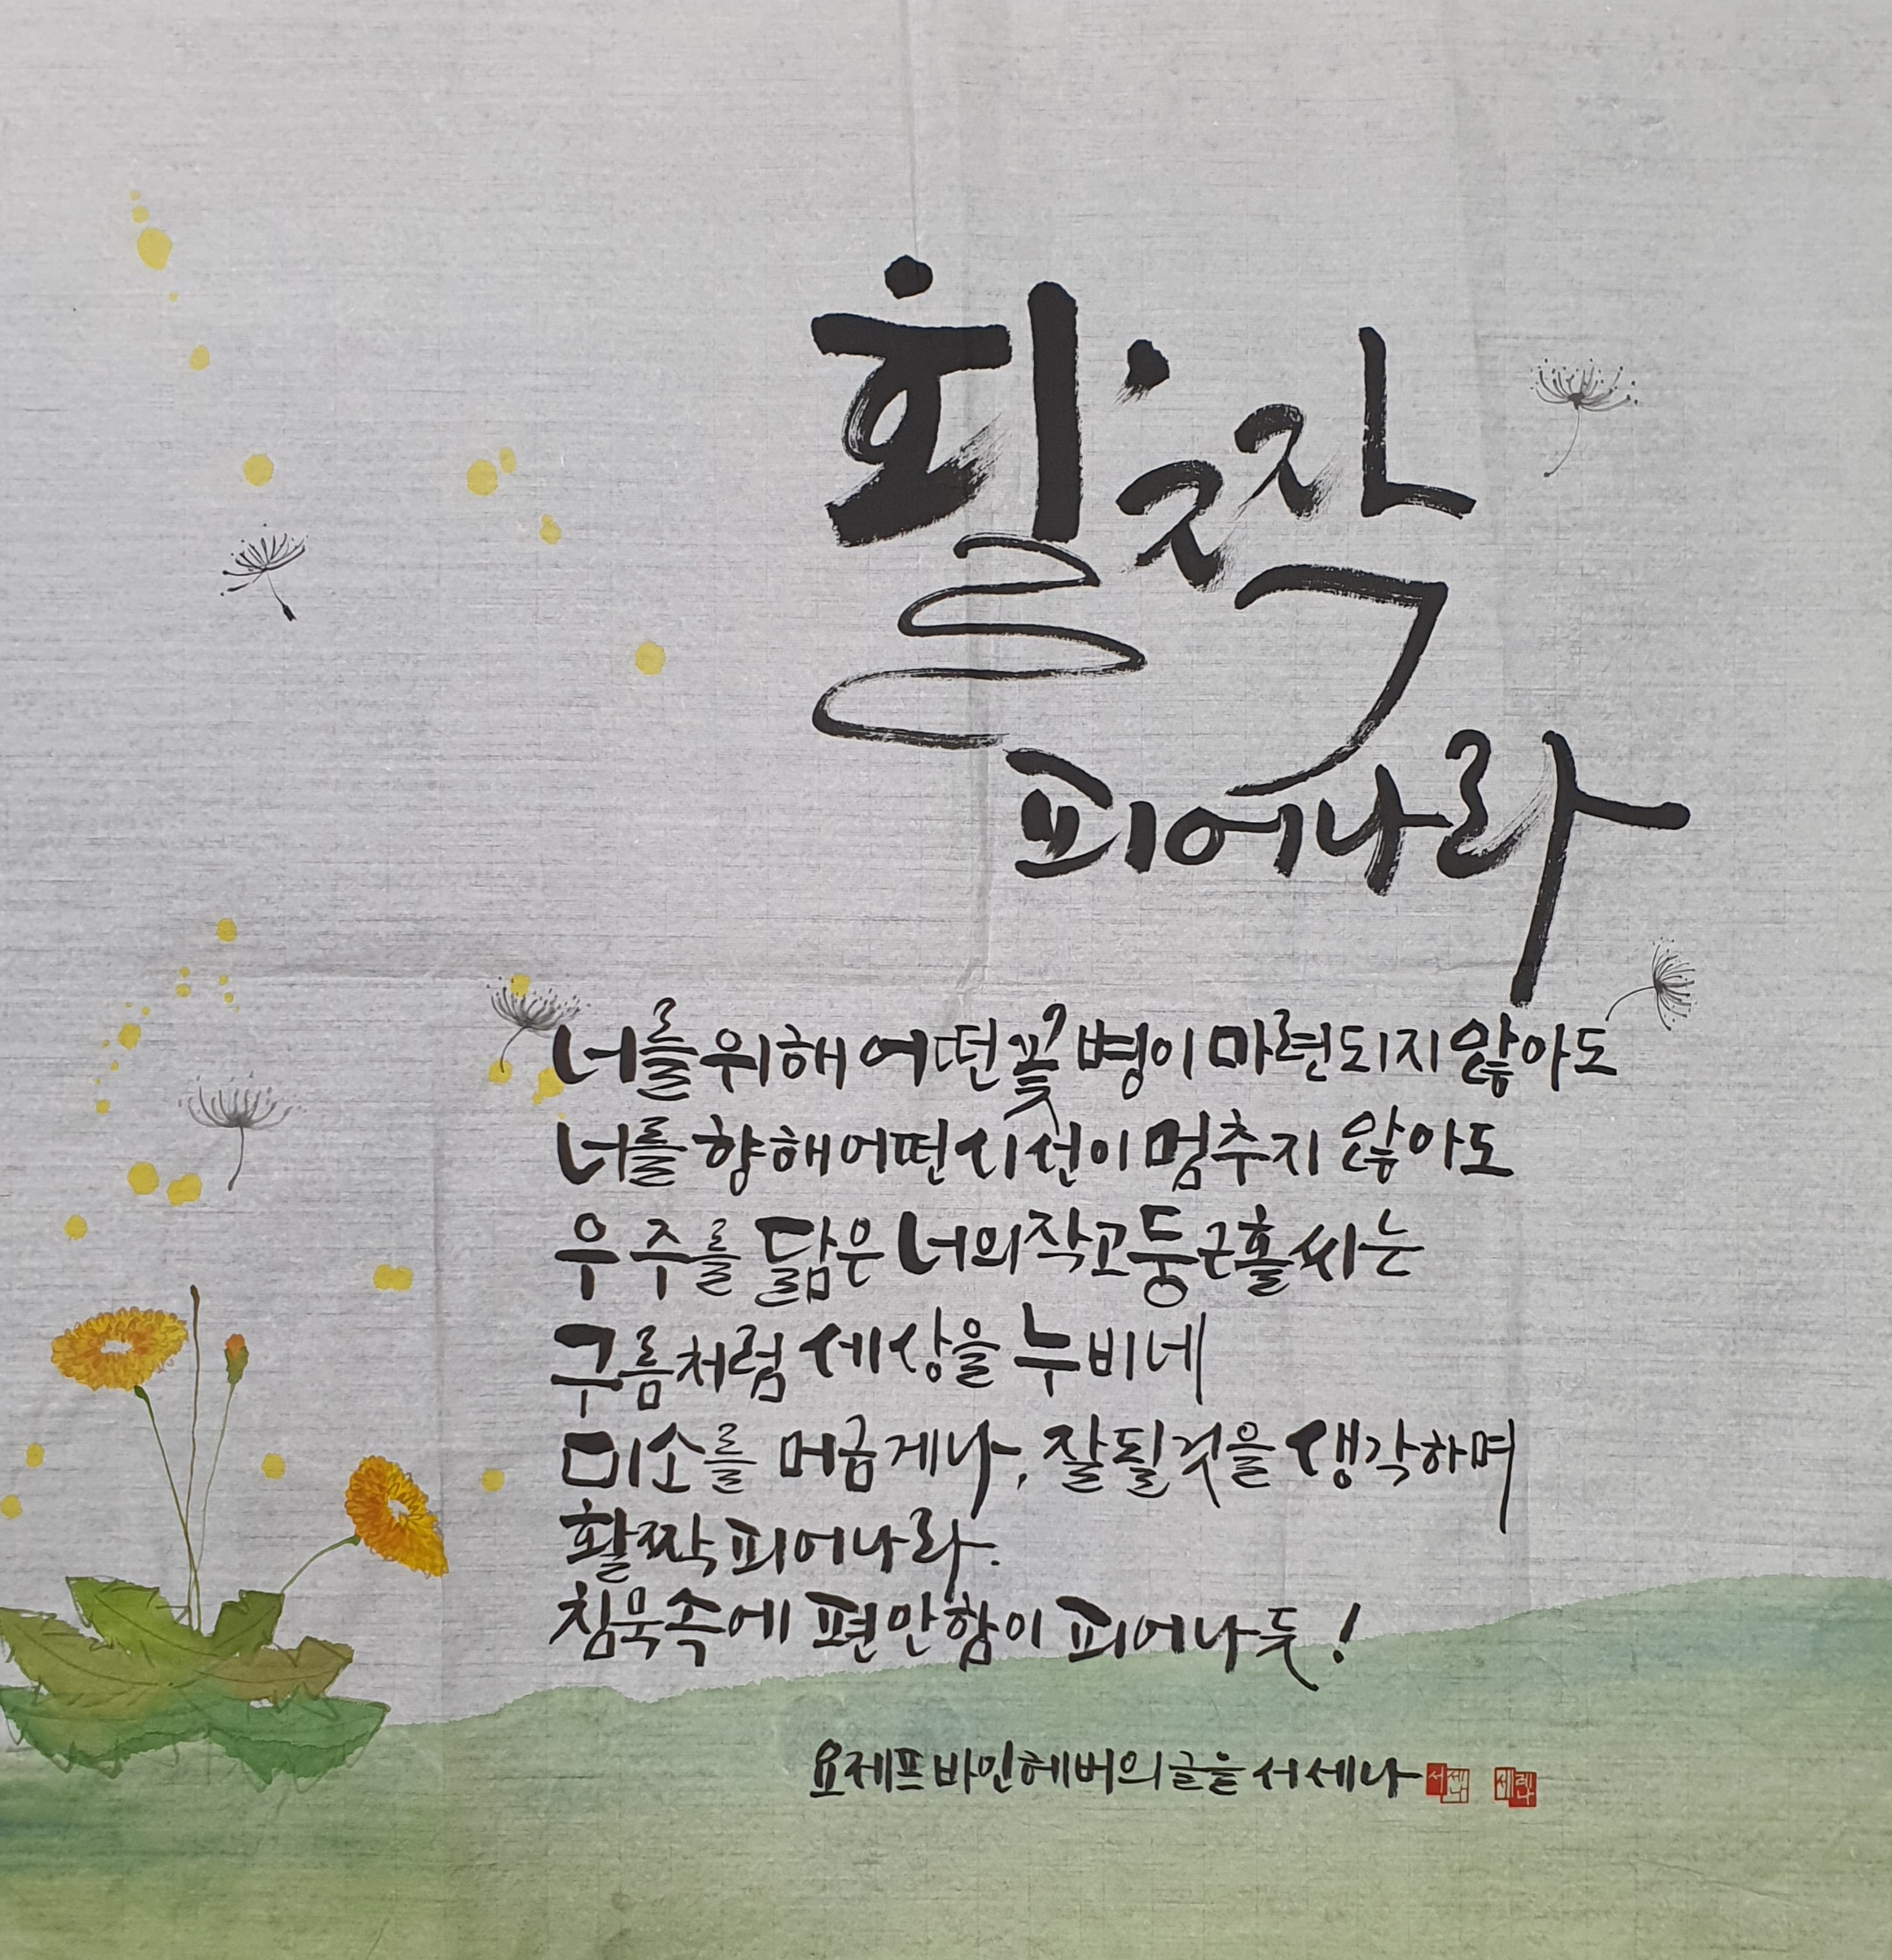 활짝
피어나라
너를 위해 어떤 꽃병이 마련되지 않아도
너를 향해 어떤 시선이 멈추지 않아도
우주를 닮은 너의 작고 둥근 홀씨는
구름처럼 세상을 누비네
미소를 머금게나, 잘될것을 생각하며
활짝 피어나라.
침묵속에 편안함이 피어나듯!
요제프 바인헤버의 글을 서세나